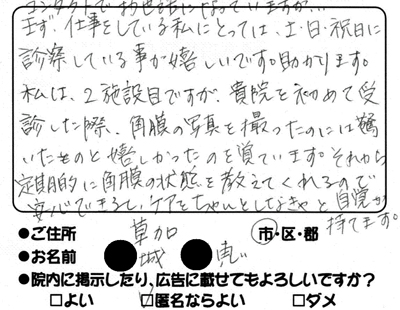 コンタクトでお世話になっていますが…
まず、仕事をしている私にとっては、土・日・祝日に
診察している事が嬉しいです。助かります。
私は、2施設目ですが、貴院を初めて受
診した際、角膜の写真を撮ったのには驚
いたものと嬉しかったのを覚えています。それから
定期的に角膜の状態を教えてくれるので
安心できるし、ケアをちゃんとしなきゃと自覚が
持てます。
●ご住所 草加 市・区・郡
●お名前 城 恵
●院内に掲示したり、広告に載せてもよろしいですか?
□よい □匿名ならよい □ダメ